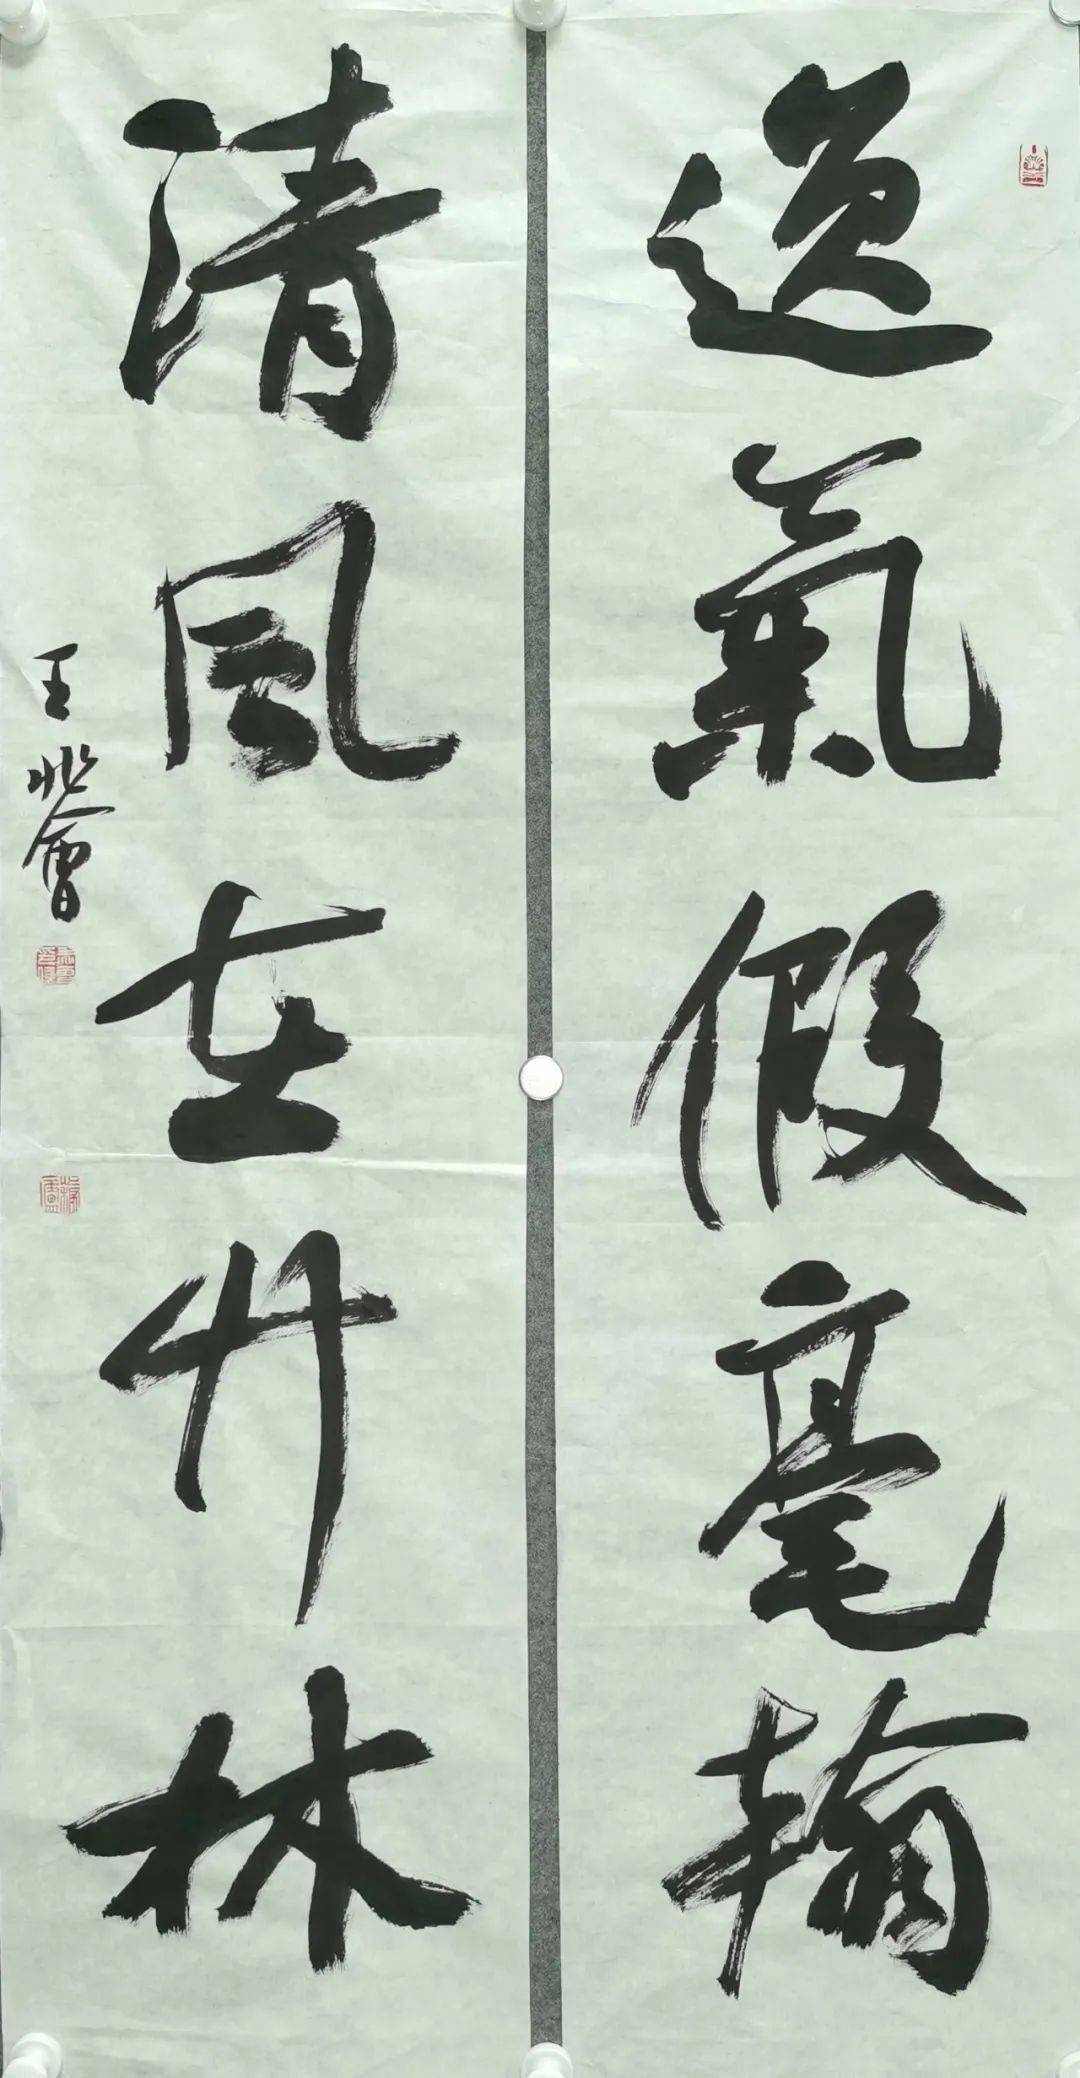 逸氣假毫翰
清風在竹林
王兆會